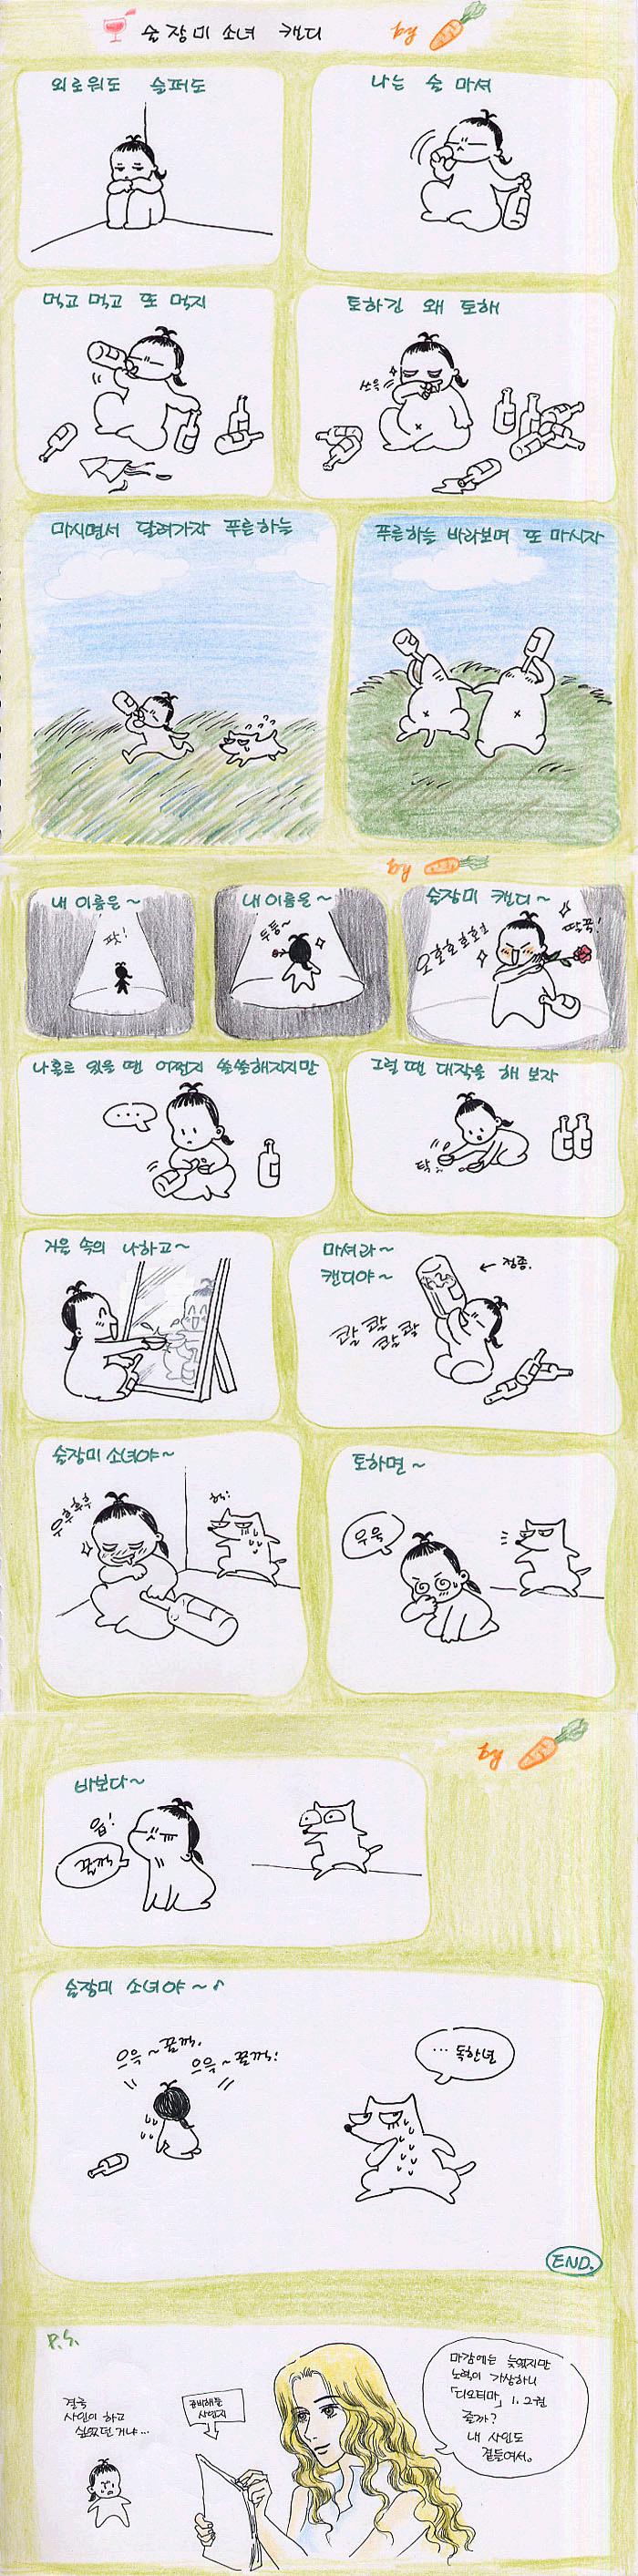 술장미 소녀 캔디 by
외로워도 슬퍼도
나는 술 마셔
먹고 먹고 또 먹지
토하긴 왜 토해
쓰윽
마시면서 달려가자 푸른하늘
푸른하늘 바라보며 또 마시자
by
내 이름은~
팟!
내 이름은~
두둥~
술장미 캔디~
오호호호호
딸꾹!
나홀로 있을 땐 어쩐지 쓸쓸해지지만
...
그럴 땐 대작을 해 보자
탁
거울 속의 나하고~
마셔라~
캔디야~
← 정종.
콸콸
콸콸
술장미 소녀야~
우후후후
헉!
토하면~
우욱
by
바보다~
읍!
꿀꺽
술장미 소녀야~♪
으윽~꿀꺽.
으윽~꿀꺽!
... 독한년
END.
P.S.
결국
사인이 하고
싶었던거냐...
준비해둔
사인지
마감에는 늦었지만
노력이 가상하니
「디오티마」 1, 2권
줄까?
내 사인도
곁들여서.